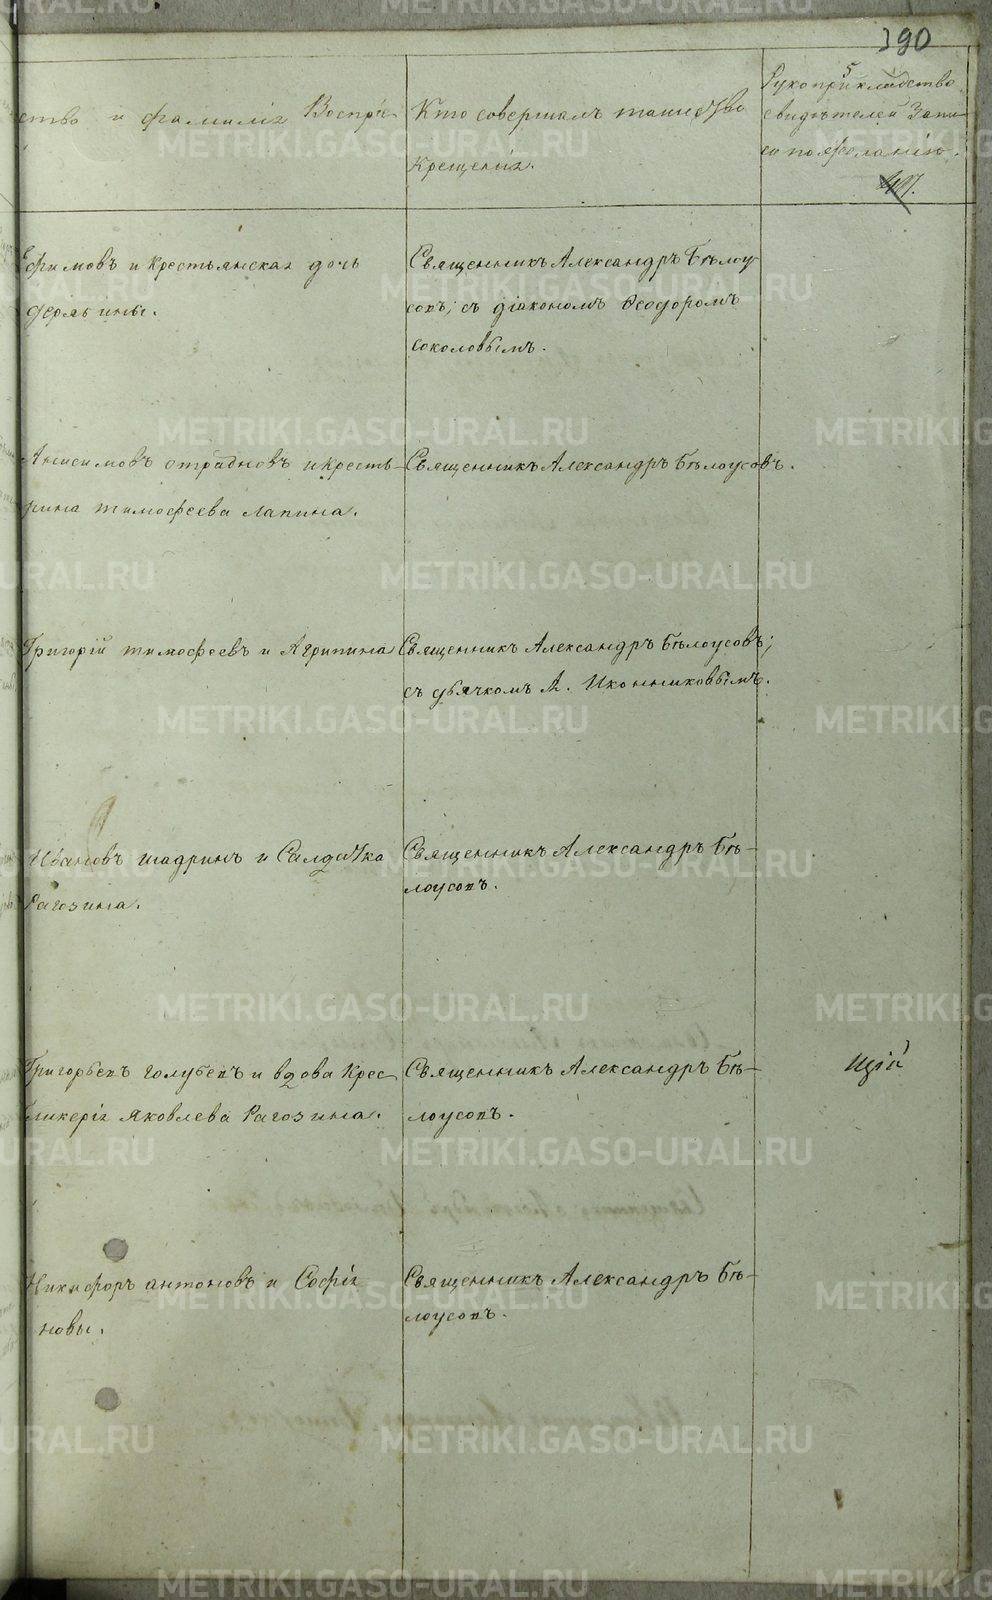 390
5
ство и фамилія Воспрі-
Кто совершалъ таинство
Крещенія.
Рукоприкладство
свидѣтелей Запи-
си по желанію.
Ефимовъ и крестьянская дочь
дерябины.
Священникъ Александръ Бѣлоу-
совъ; съ діакономъ Ѳеодоромъ
Соколовымъ.
Анисимовъ отрадновъ и кресть-
рина тимофеева лапина.
Священникъ Александръ Бѣлоусовъ.
Григорій тимофеевъ и Агрипина
Священникъ Александръ Бѣлоусовъ;
съ дьячкомъ А. Иконниковымъ.
Ивановъ шадринъ и Салдатка
Рагозина.
Священникъ Александръ Бѣ-
лоусовъ.
Григорьевъ голубевъ и вдова Крес-
гликерія Яковлева Рагозина.
Священникъ Александръ Бѣ-
лоусовъ.
щій
Никифоръ антоновъ и Софія
новы.
Священникъ Александръ Бѣ-
лоусовъ.
METRIKI.GASO-URAL.RU